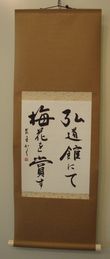 弘道館にて
梅花を賞す